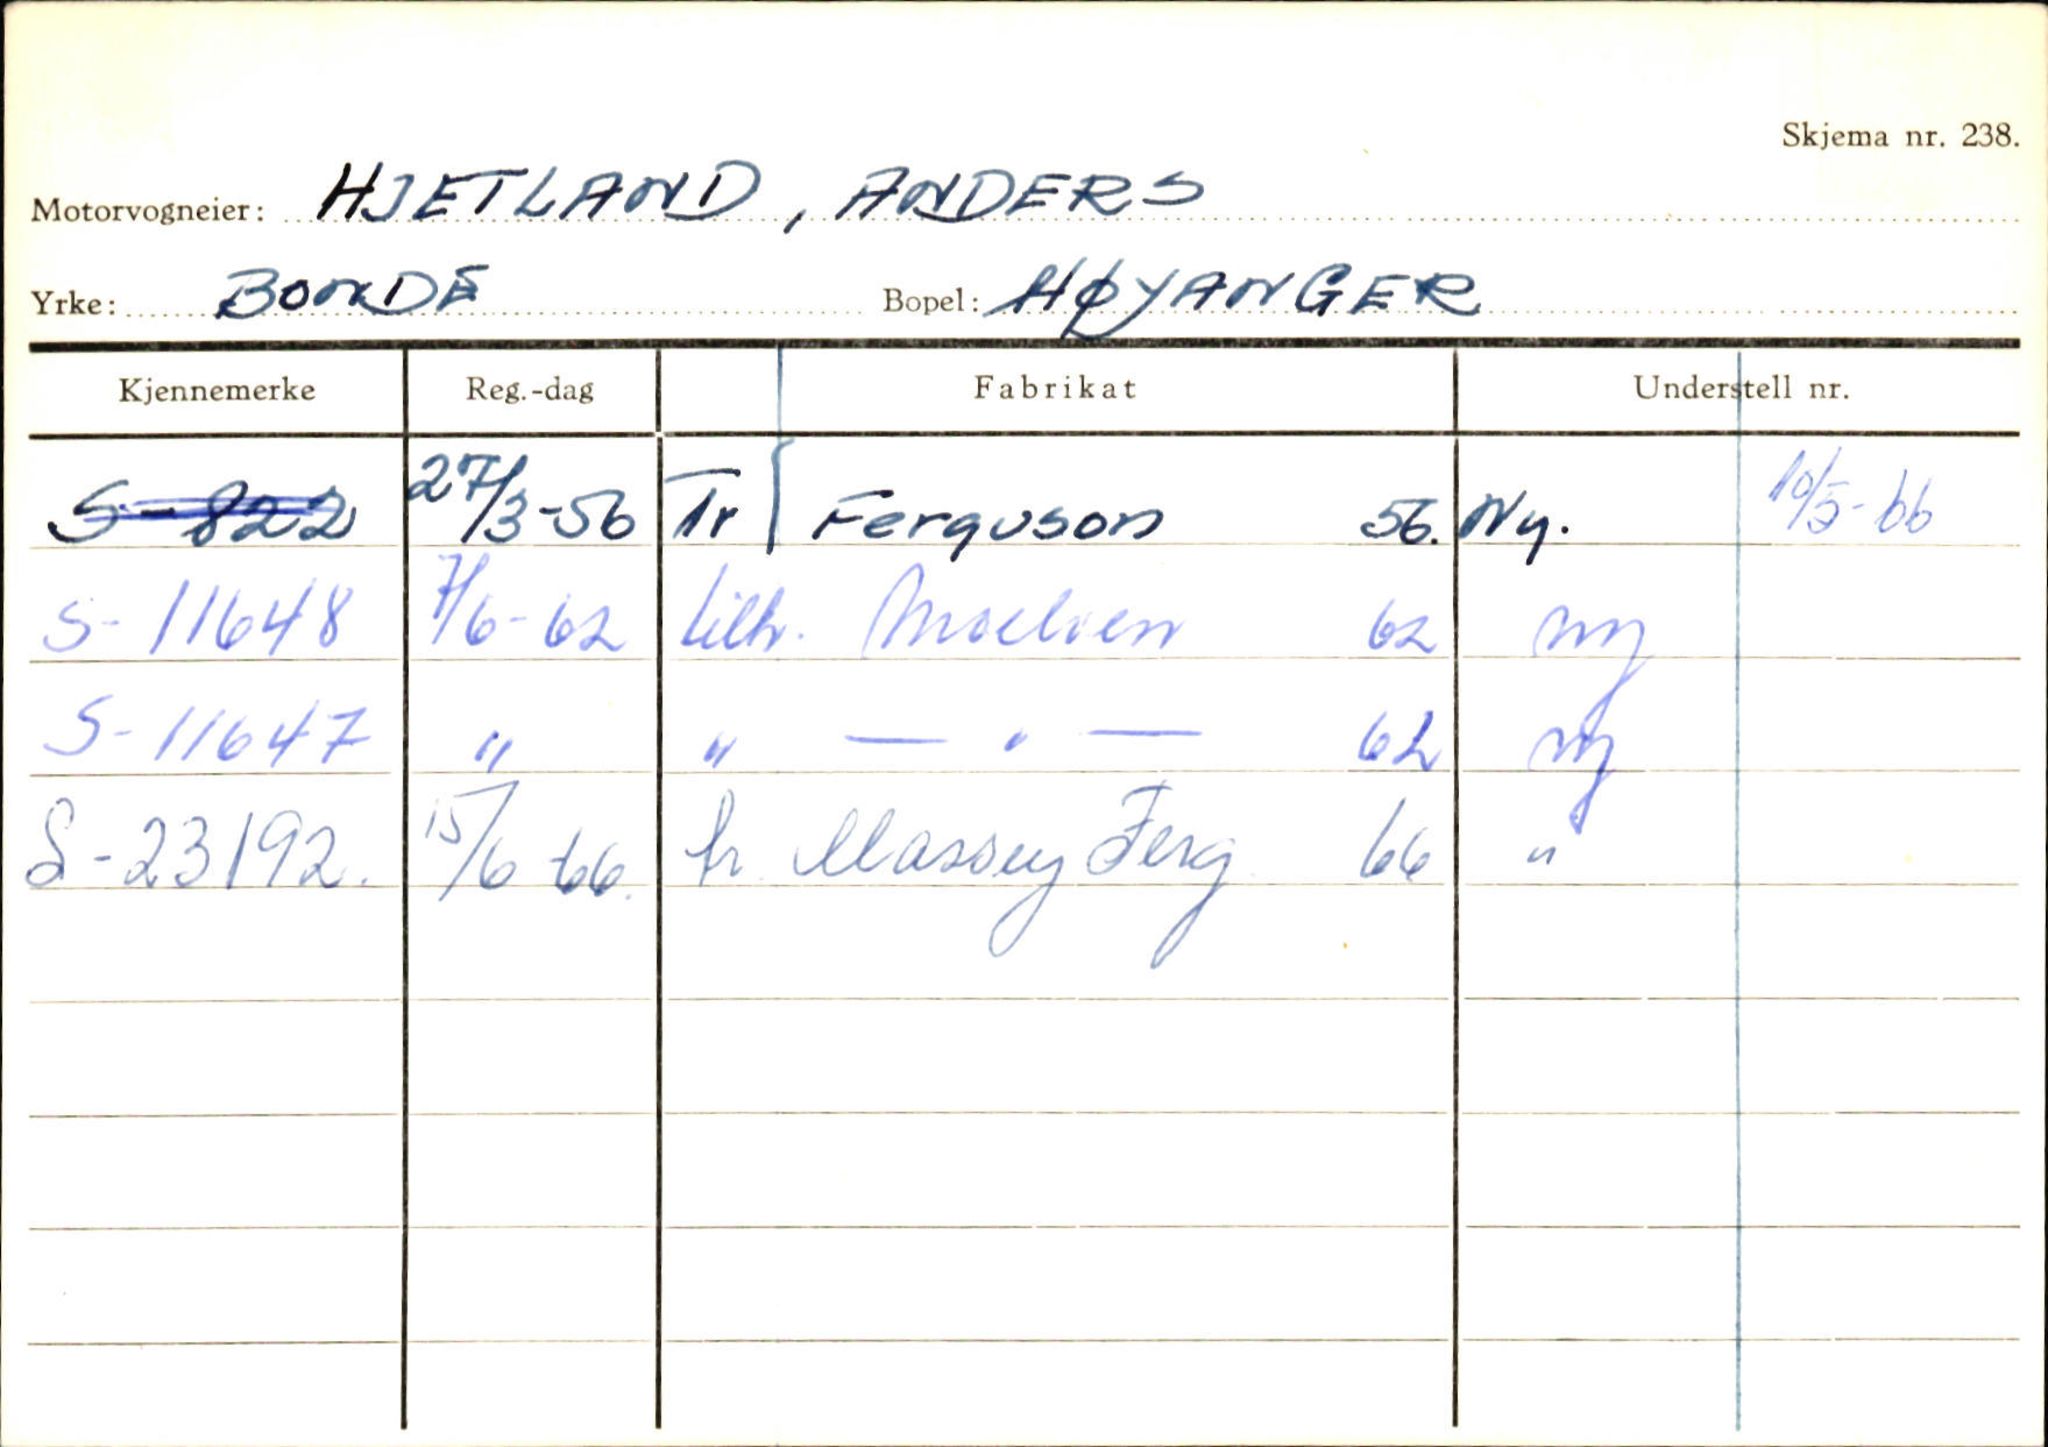 Skjema nr. 238.
Motorvogneier: HJETLAND, ANDERS
Yrke: BONDE Bopel: HØYANGER
Kjennemerke Reg.-dag Fabrikat Understell nr.
S-822 27/3-56 Tr Ferguson 56. Ny. 10/5-66
S-11648 7/6-62 tilh. Moelven 62 ny
S-11647 " " — " — 62 ny
S-23192. 15/6-66. tr. Massey Ferg. 66 "